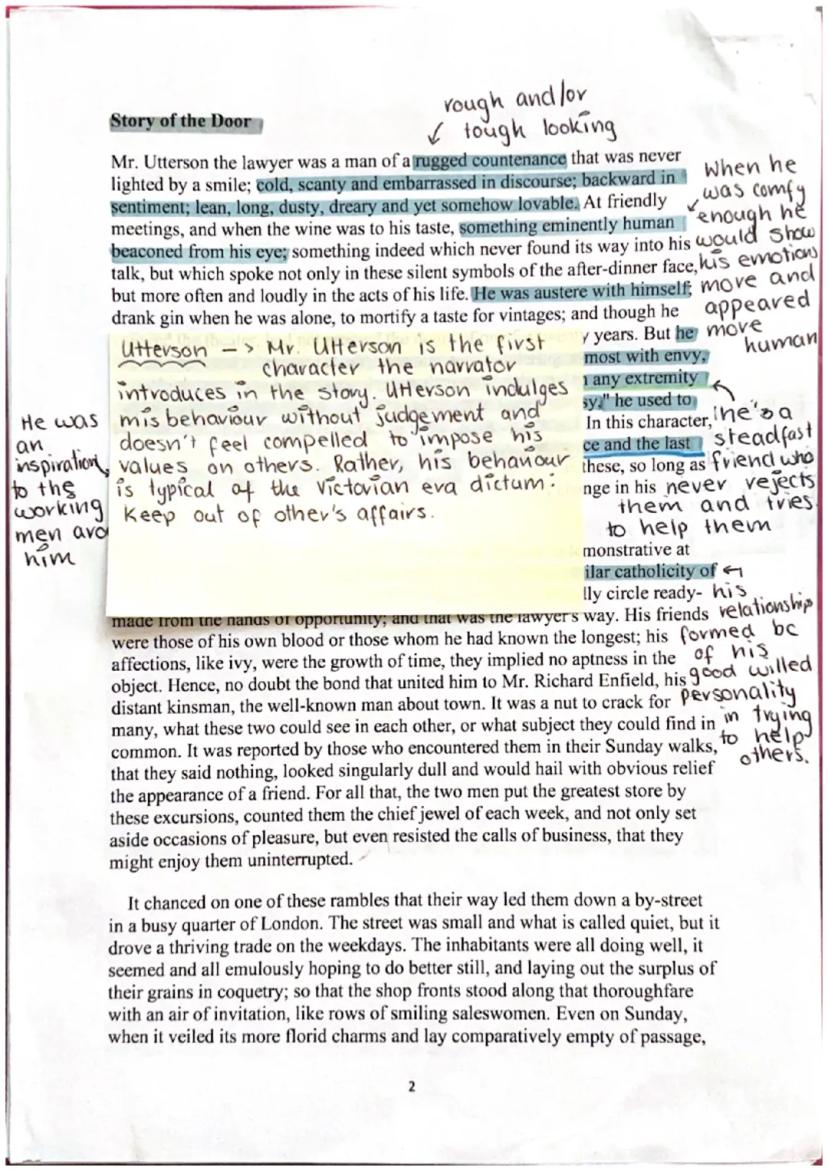 rough and/or
tough looking
Story of the Door
Mr. Utterson the lawyer was a man of a rugged countenance that was never
lighted by a smile; cold, scanty and embarrassed in discourse; backward in
sentiment; lean, long, dusty, dreary and yet somehow lovable. At friendly
meetings, and when the wine was to his taste, something eminently human
beaconed from his eye; something indeed which never found its way into his
talk, but which spoke not only in these silent symbols of the after-dinner face,
but more often and loudly in the acts of his life. He was austere with himself;
drank gin when he was alone, to mortify a taste for vintages; and though he
y years. But he
most with envy,
any extremity
sy," he used to
In this character,
ce and the last
these, so long as
nge in his
monstrative at
ilar catholicity of
lly circle ready-
made from the hands of opportunity; and that was the lawyer's way. His friends
were those of his own blood or those whom he had known the longest; his
affections, like ivy, were the growth of time, they implied no aptness in the
object. Hence, no doubt the bond that united him to Mr. Richard Enfield, his
distant kinsman, the well-known man about town. It was a nut to crack for
many, what these two could see in each other, or what subject they could find in
common. It was reported by those who encountered them in their Sunday walks,
that they said nothing, looked singularly dull and would hail with obvious relief
the appearance of a friend. For all that, the two men put the greatest store by
these excursions, counted them the chief jewel of each week, and not only set
aside occasions of pleasure, but even resisted the calls of business, that they
might enjoy them uninterrupted.
It chanced on one of these rambles that their way led them down a by-street
in a busy quarter of London. The street was small and what is called quiet, but it
drove a thriving trade on the weekdays. The inhabitants were all doing well, it
seemed and all emulously hoping to do better still, and laying out the surplus of
their grains in coquetry; so that the shop fronts stood along that thoroughfare
with an air of invitation, like rows of smiling saleswomen. Even on Sunday,
when it veiled its more florid charms and lay comparatively empty of passage,
2
When he
was comfy
enough he
would show
his emotions
more and
appeared
more
human
Utterson -> Mr. Utterson is the first
character the narrator
introduces in the story. Utterson indulges
misbehaviour without judgement and
doesn't feel compelled to impose his
values on others. Rather, his behaviour
is typical of the Victorian era dictum:
Keep out of other's affairs.
He was
an
inspiration
to the
working
men aro
him
he's a
steadfast
friend who
never rejects
them and tries
to help them
his
relationships
formed bc
of his
good willed
personality
in trying
to help
others.